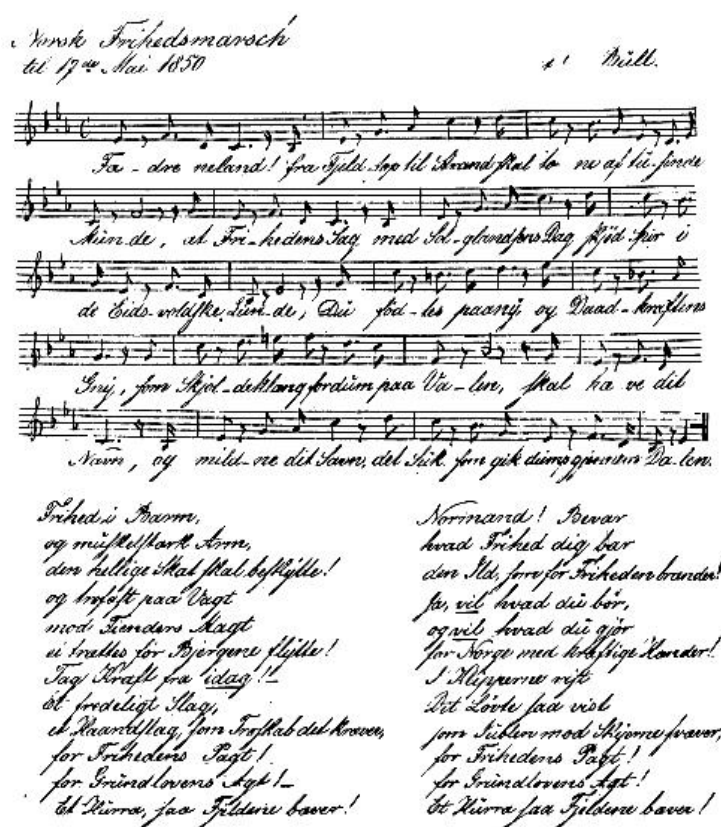 Norsk Frihedsmarsch
til 17de Mai 1850
Büll.
Fa-dre neland! fra Fjeld-top til Strand skal to ne af tü-sinde
Mün-de, at Fri-hedens Dag med Sol-glandsens Dag skjöd Spir i
de Eids-voldske Lün-de, Dü föd-tes paany, og Daad-kraftens
Gny, som Skjol-deklang fordüm paa Va-len, skal ha ve dit
Navn, og mild-ne dit Savn, det Sük som gik dümpt gjennem Da-len.
Frihed i Barm,
og müskelstærk Arm,
den hellige Skat skal beskytte!
og trofast paa Vagt
mod Fienders Magt
ei trættes før Bjergene flytte!
Tag Kraft fra idag!!–
Et fredeligt Slag,
et Haandslag, som Troskab det kræver,
for Frihedens Pagt!
for Gründlovens Agt!–
Et Hürra, saa Fjeldene bæver!
Normand! Bevar
hvad Frihed dig bar
den Ild, som for Friheden brænder!
Ja, vil hvad dü bör,
og vil hvad dü gjör
for Norge med kræftige Hænder!
I Klipperne rist
Dit Løvte saa vist
som Jüblen mod Skyerne svæver,
for Frihedens Pagt!
for Gründlovens Agt!
Et Hürra saa Fjeldene bæver!